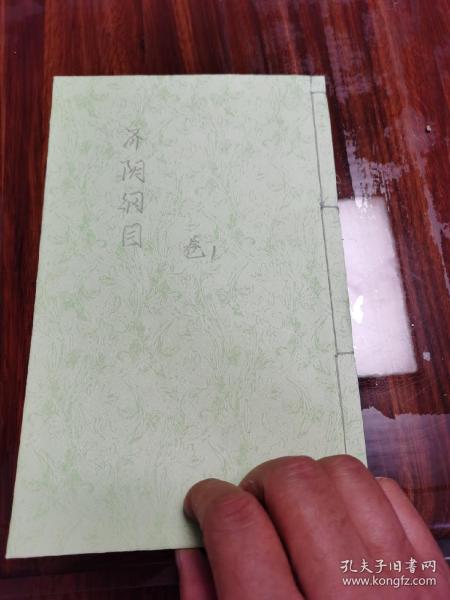 济阴纲目
卷1
孔夫子旧书网
www.kongfz.com